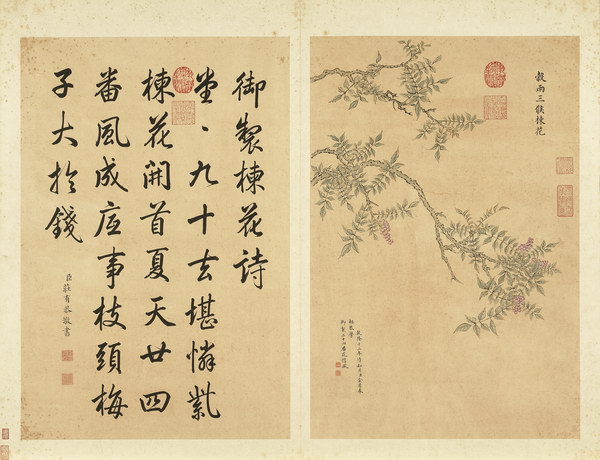 穀雨三候楝花
御製楝花詩
堂、九十去堪憐紫
楝花開首夏天廿四
番風成底事枝頭梅
子大於錢
臣莊有恭敬書